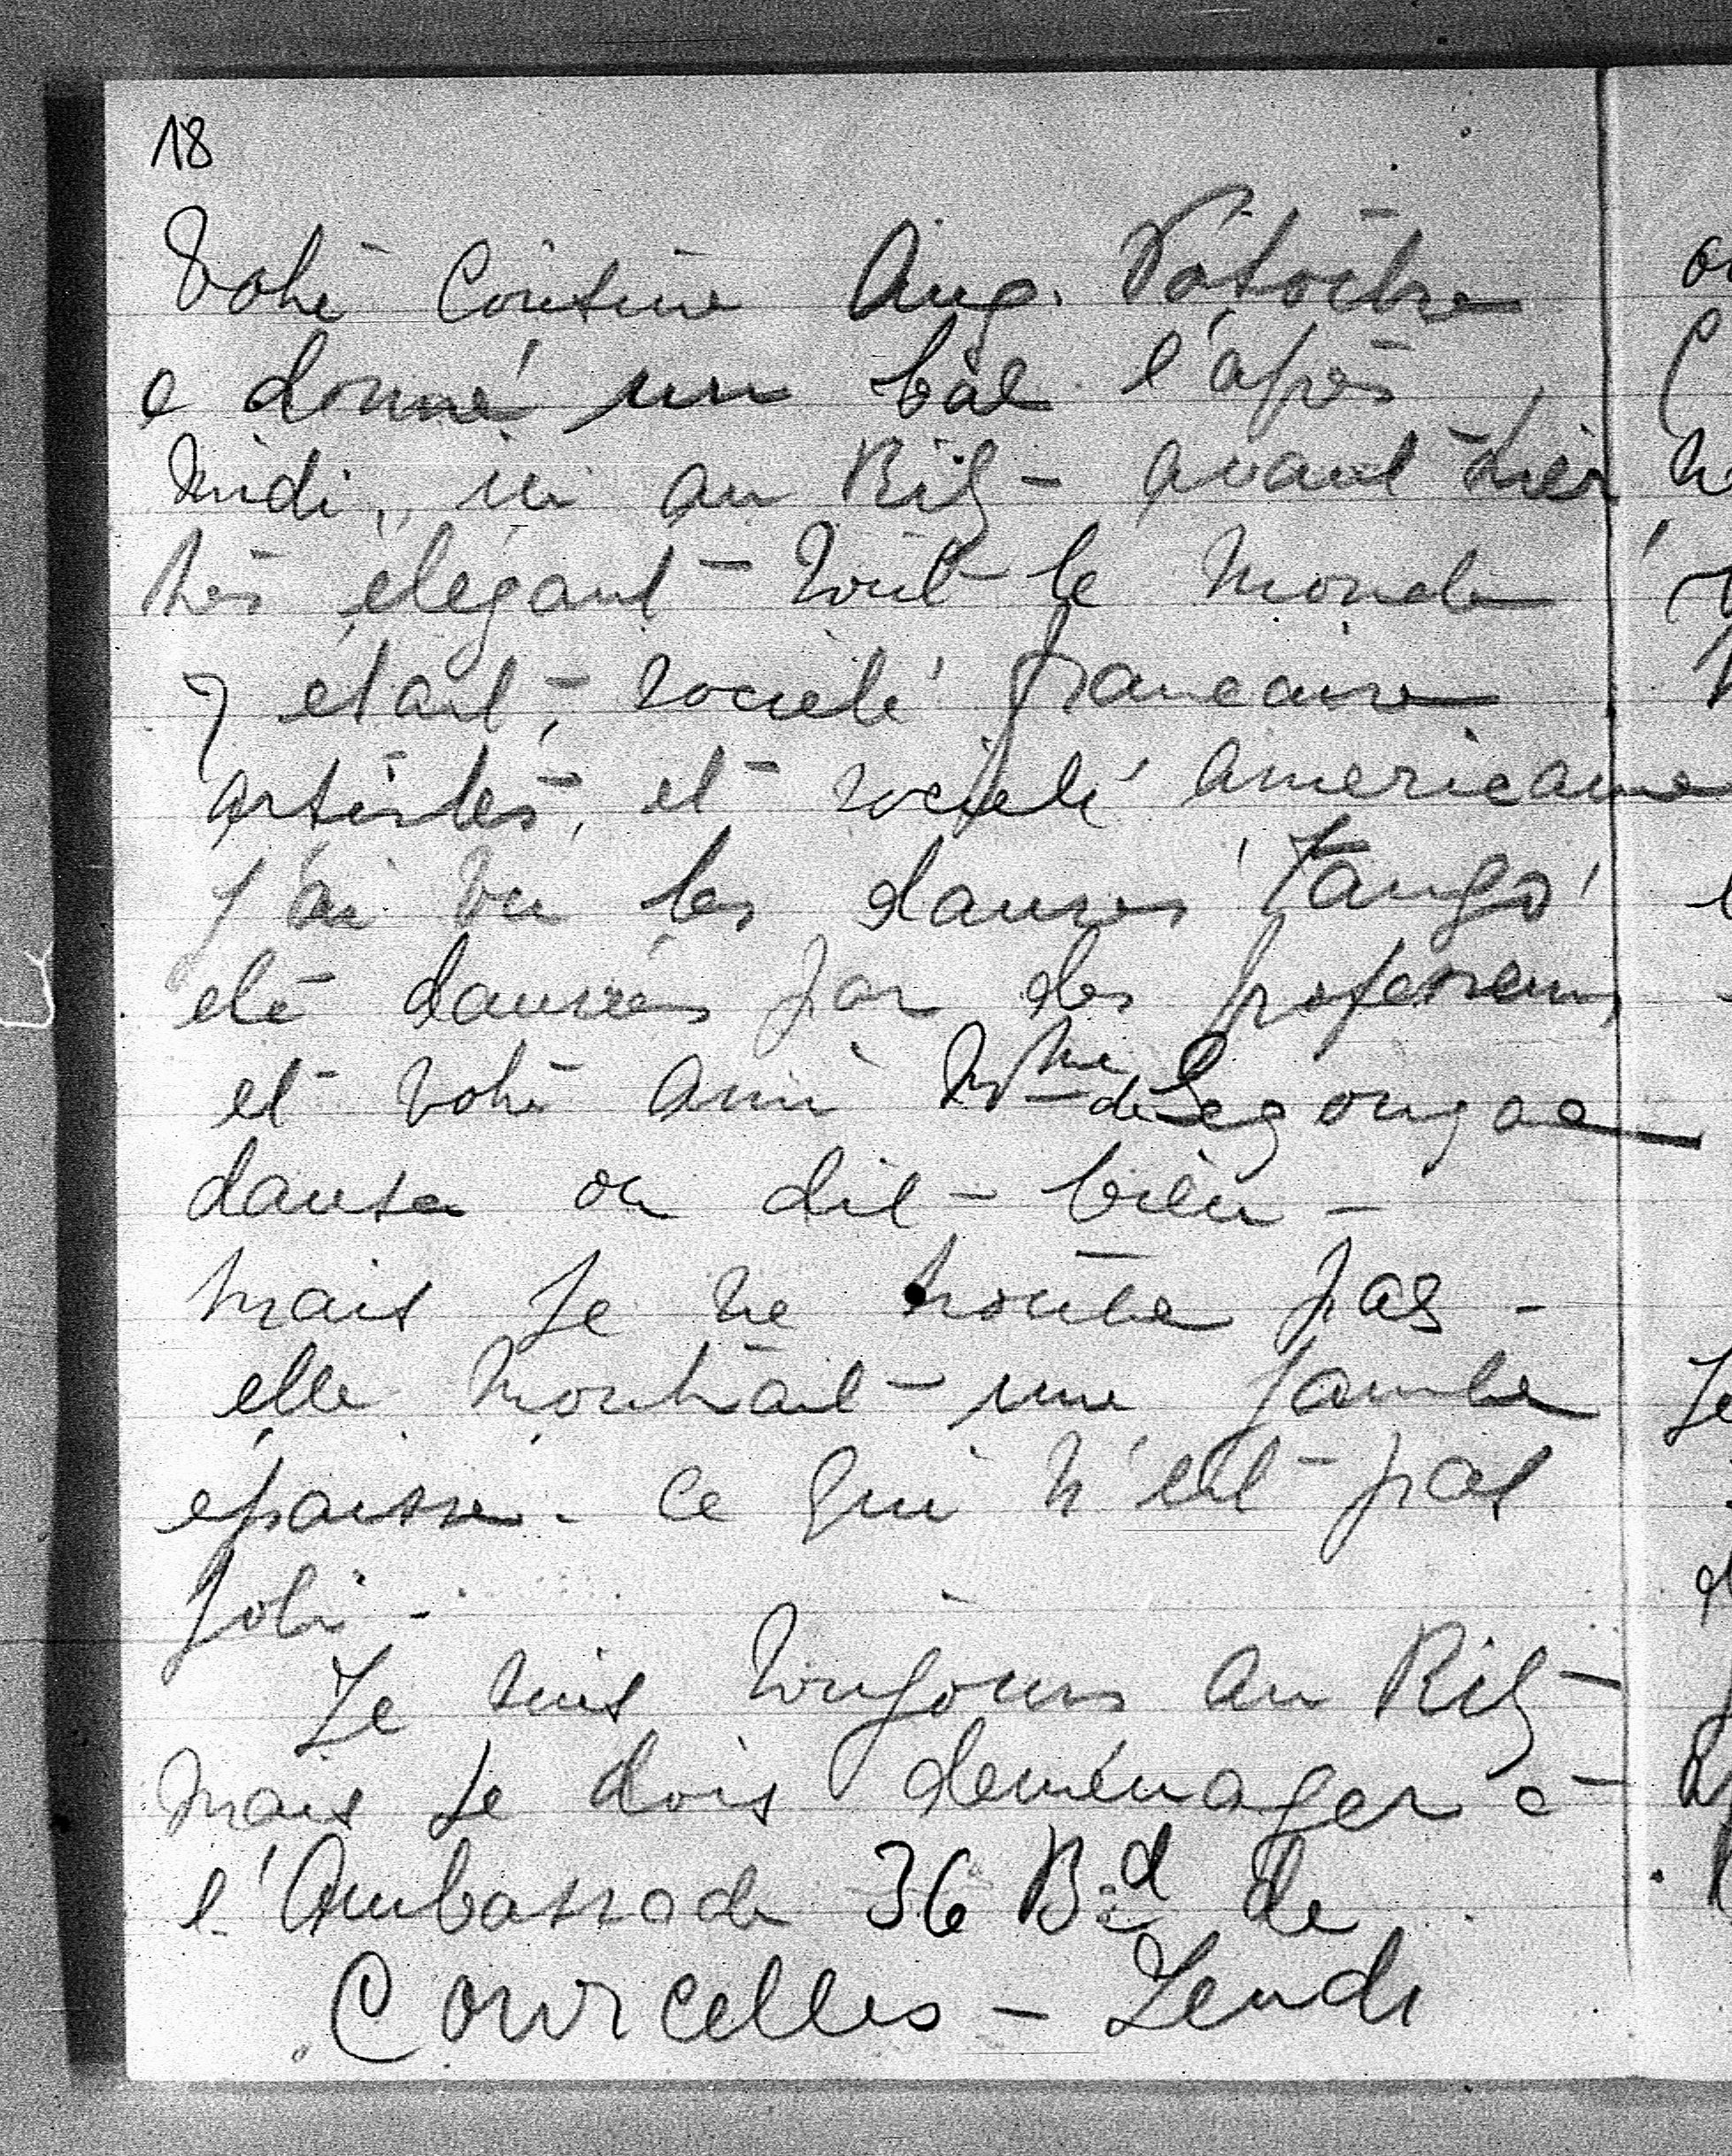 18
Votre Cousine Aug.
a donné un bal l'après
midi, ici au Ritz - avant hier
très élégant - tout le monde
y était, - société francaise
artistes, et société américaine
J'ai vu les danses 'Tango'
été dansées par des professeurs
et votre ami Mme de
danse on dit - bien -
mais je ne trouve pas -
elle montrait - une jambe
épaisse - ce qui n'est pas
joli -
Je suis toujours au Ritz -
mais je dois déménager à
l'Ambassade 36 Bd de
Courcelles - Jeudi